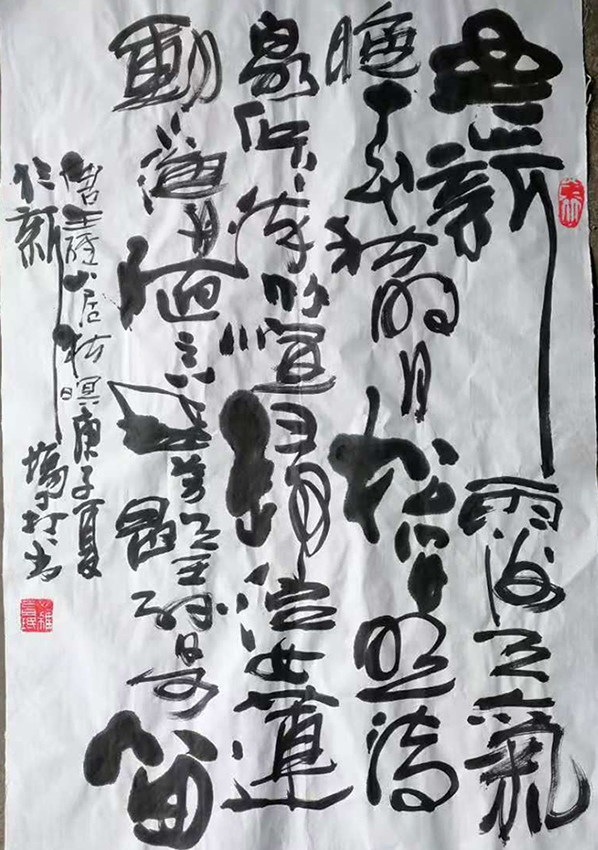 空山新雨後天氣
晚來秋明月松間照清
泉石上流竹喧歸浣女蓮
動下漁舟隨意春芳歇王孫自可留
王維山居秋暝庚子夏
於新書